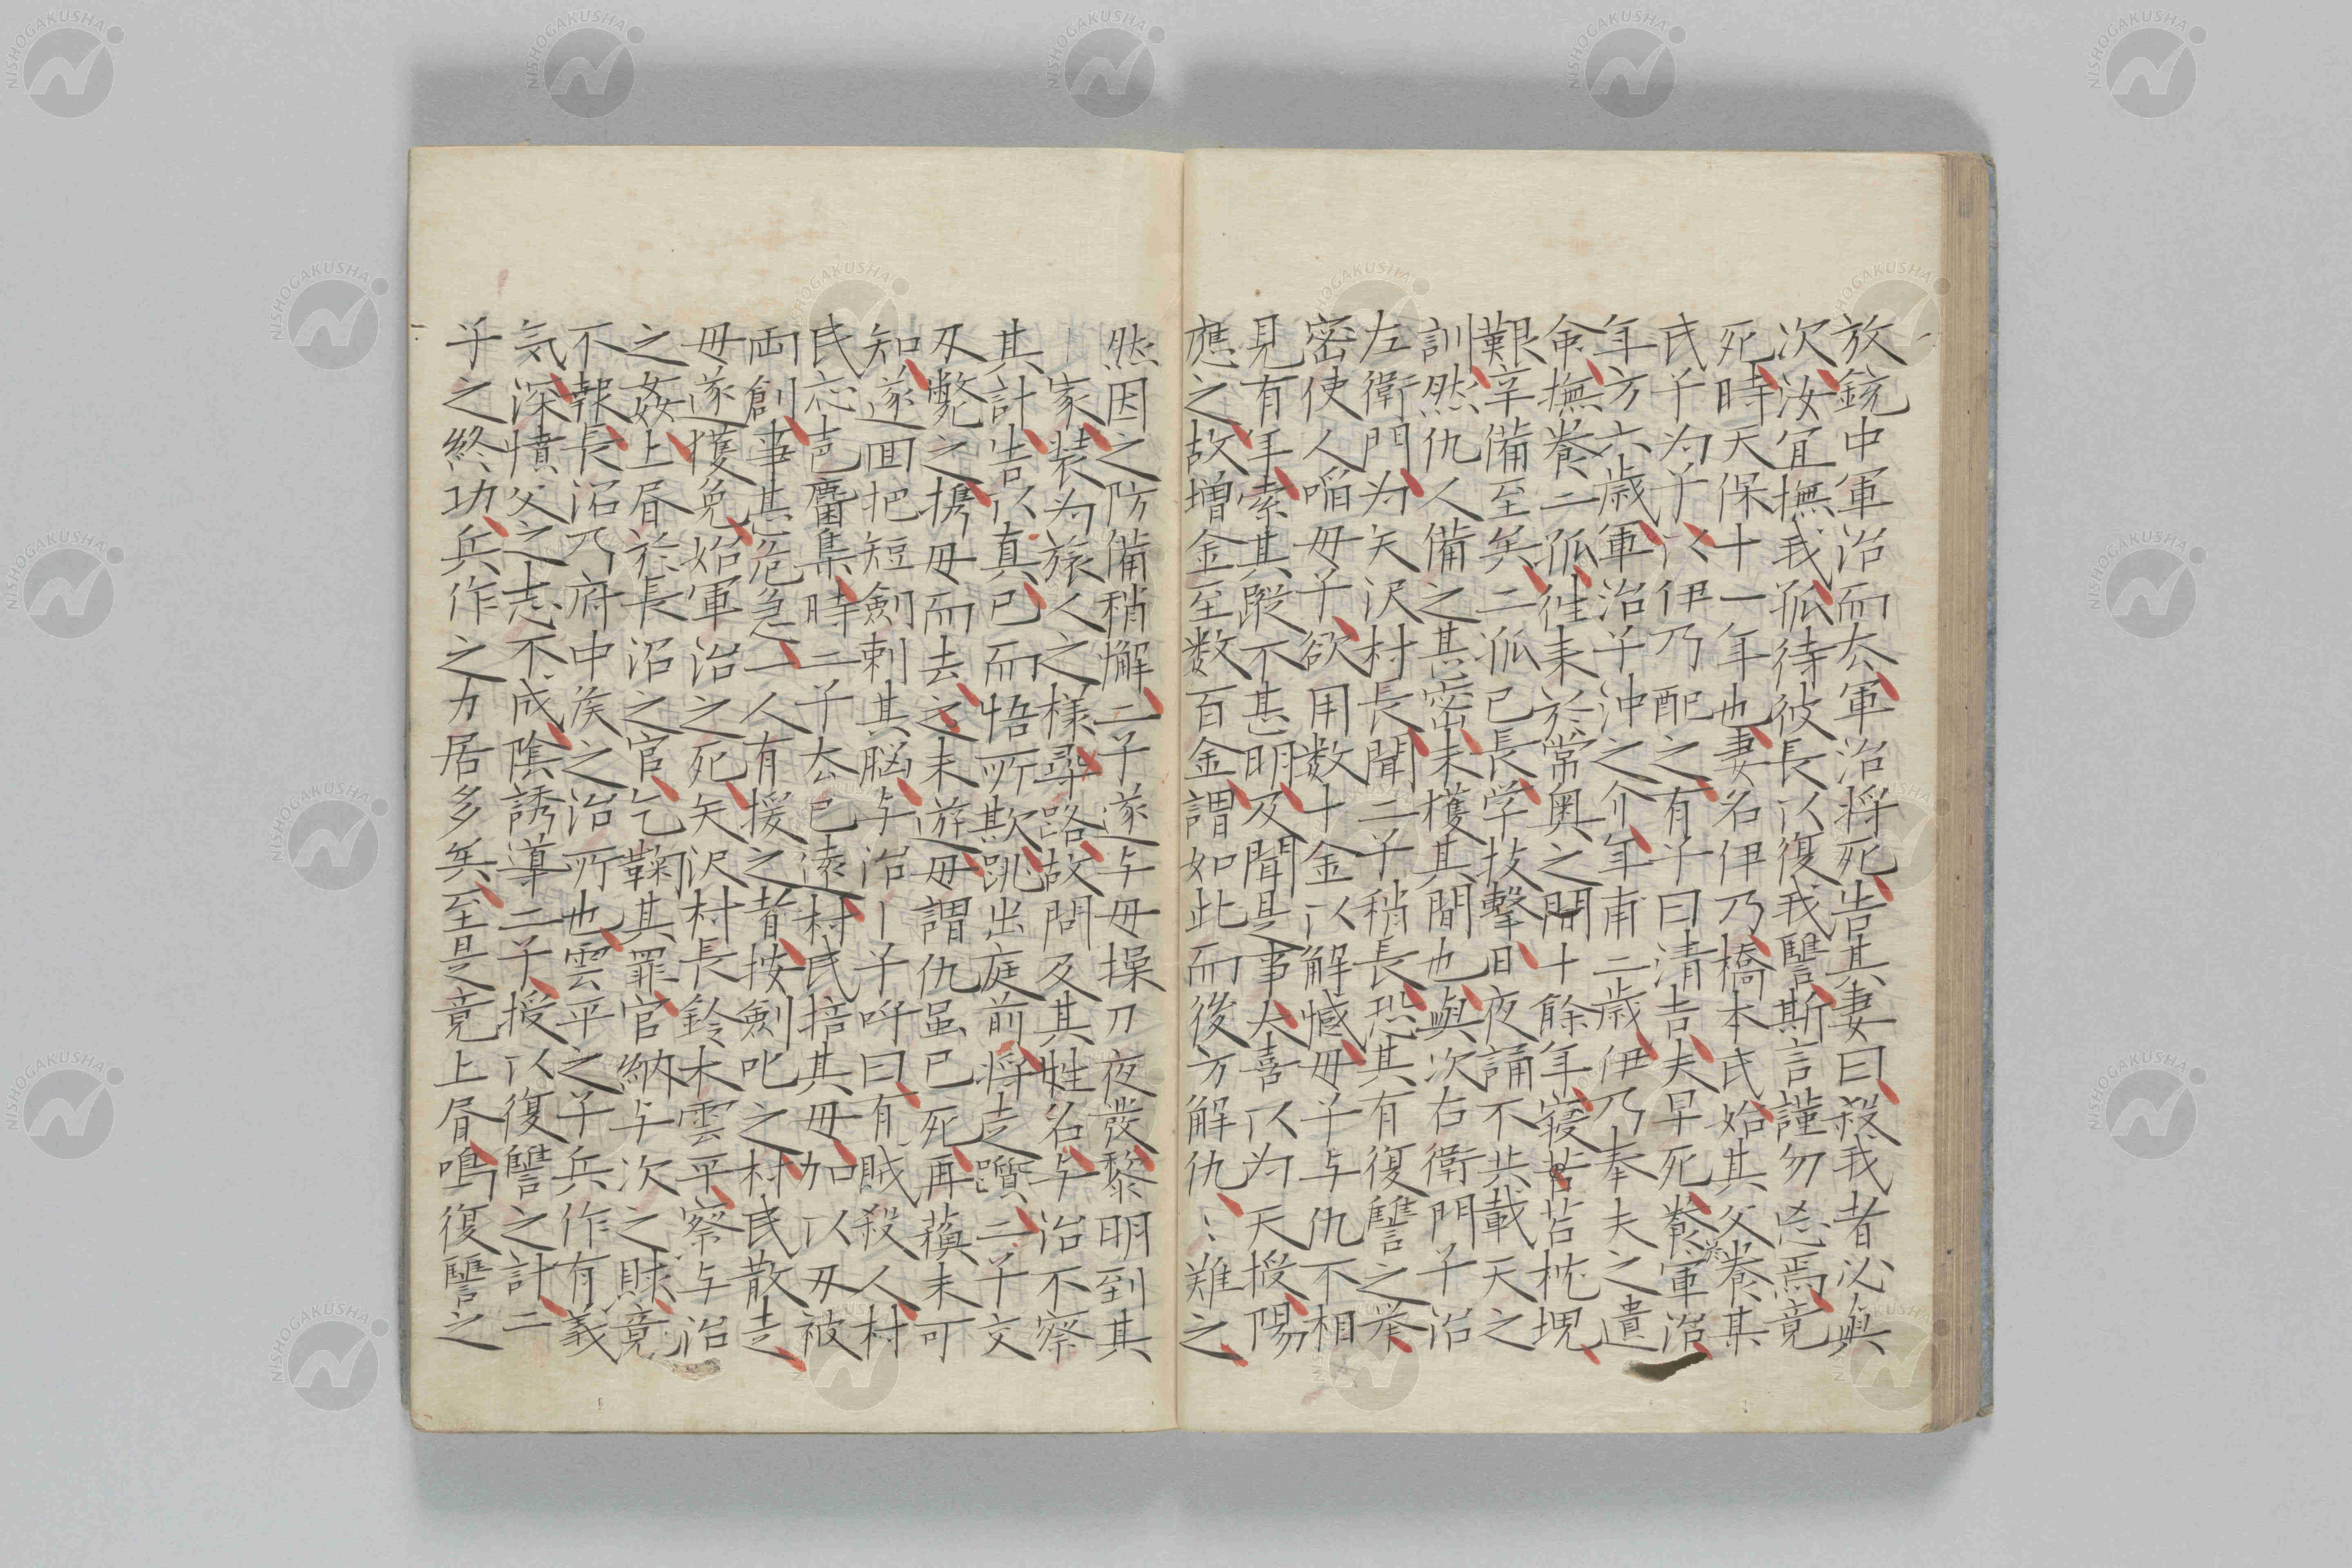 放銃中軍治而去軍治将死告其妻曰殺我者必與
次汝宜撫我孤待彼長以復我讐斯言謹勿忘焉竟
死時天保十一年也妻名伊乃橋本氏始其父養其
氏子為子以伊乃配之有子曰清吉夫早死養軍治
年方六歳軍治子沖之介年甫二歳伊乃奉夫之遺
命撫養二孤徃来於常奥之間十餘年寝苫枕塊
艱辛備至矣二孤已長学技撃日夜誦不共載天之
訓然仇人備之甚密未獲其間也與次右衛門子治
左衛門為矢沢村長聞二子稍長恐其有復讐之挙
密使人啗母子欲用数十金以解憾母子与仇不相
見有年索其蹤不甚明及聞是事大喜以為天授陽
應之故増金至数百金謂如此而後方解仇〻難之
然因之防備稍懈二子遂与母操刀夜発黎明到其
家装為旅人之様尋路故問及其姓名与治不察
其計告以真已而悟所欺跳出庭前将走躓二子交
刃斃之携母而去之未遊母謂仇虽已死再蘓未可
知遂回把短劍刺其脳与治子呼曰有賊殺人村
民応声麕集時二子去已遠村民掊其母加以刃被
両創事甚危急一人有援之者按劍叱之村民散走
母遂獲免始軍治之死矢沢村長鈴木雲平察与治
之姦上屓於長沼之官乞鞠其罪官納与次之賕竟
不報長沼乃府中侯之治所也雲平之子兵作有義
気深憤父之志不成陰誘導二子授以復讐之計二
子之終功兵作之力居多矣至是竟上屓鳴復讐之